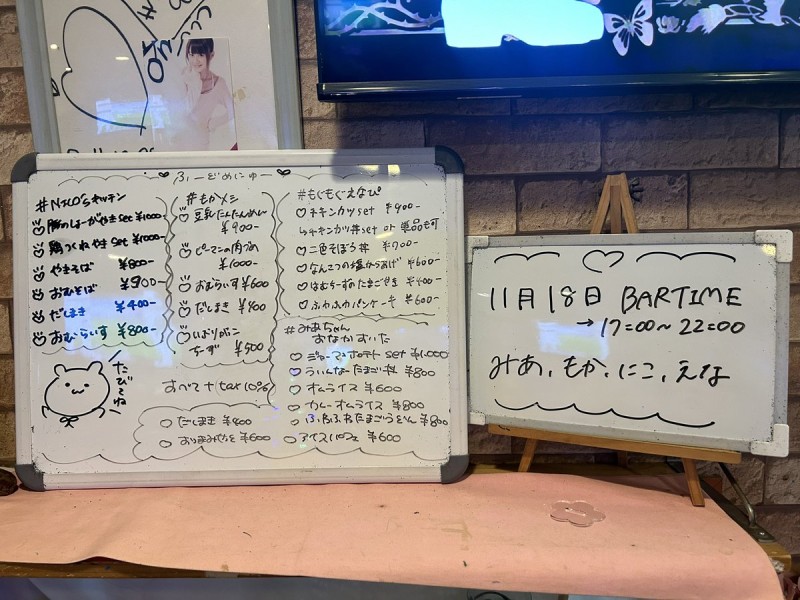 ふーどめにゅー
#NICO'sキッチン
豚のしょーがやきset ¥1000-
鶏つくねやきset ¥1000-
やきそば ¥800-
おむそば ¥900-
だしまき ¥400-
おむらいす ¥800-
たべてね
#もかメシ
豆乳たんたんめん
¥900-
ピーマンの肉詰
¥1000-
おむらいす ¥600
だしまき ¥400
いぶりガッコ
ちーず ¥500
すべて+tax(10%)
だしまき ¥400
#もぐもぐえなぴ
チキンカツset ¥900-
↳チキンカツ丼set or 単品も可
二色そぼろ丼 ¥700-
なんこつの塩からあげ ¥600-
はむちーずのたまごやき ¥400-
ふわふわパンケーキ ¥600-
#みあちゃん
おなかすいた
ジャーマンポテトset ¥1,000
ういんなーたまご丼 ¥800
オムライス ¥600
カレーオムライス ¥800
ふわふわたまごうどん ¥800
アイスパフェ ¥600
11月18日 BARTIME
→17:00~22:00
みあ、もか、にこ、えな